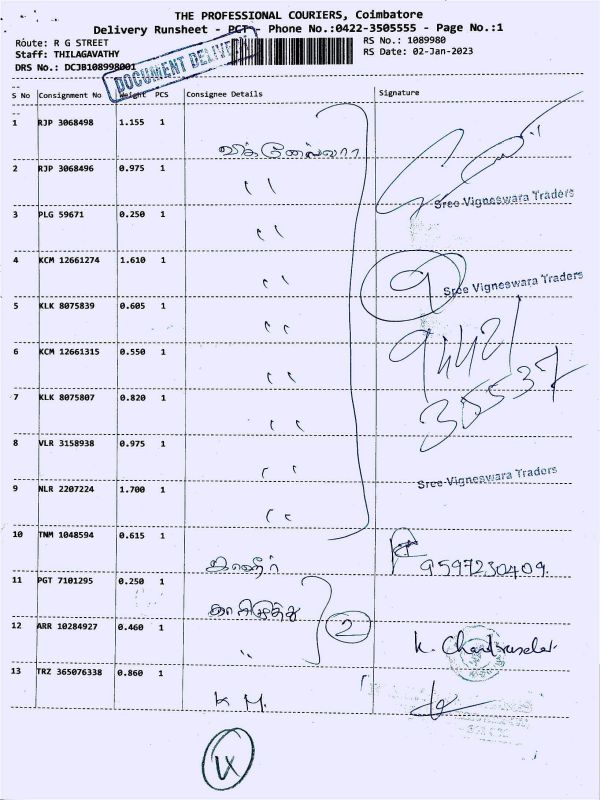 THE PROFESSIONAL COURIERS, Coimbatore
Delivery Runsheet - PGT - Phone No.:0422-3505555 - Page No.:1
Route: R G STREET
RS No.: 1089980
Staff: THILAGAVATHY
RS Date: 02-Jan-2023
DRS No.: DCJB108998001
DOCUMENT DELIVERY
S No Consignment No Weight PCS Consignee Details Signature
1 RJP 3068498 1.155 1
2 RJP 3068496 0.975 1 "
Sree Vigneswara Traders
3 PLG 59671 0.250 1 "
4 KCM 12661274 1.610 1 " 9
Sree Vigneswara Traders
5 KLK 8075839 0.605 1 "
94421
6 KCM 12661315 0.550 1 "
35537
7 KLK 8075807 0.820 1 "
8 VLR 3158938 0.975 1 "
Sree Vigneswara Traders
9 NLR 2207224 1.700 1 "
10 TNM 1048594 0.615 1
9597230409.
11 PGT 7101295 0.250 1
12 ARR 10284927 0.460 1 " 2
13 TRZ 365076338 0.860 1 K M.